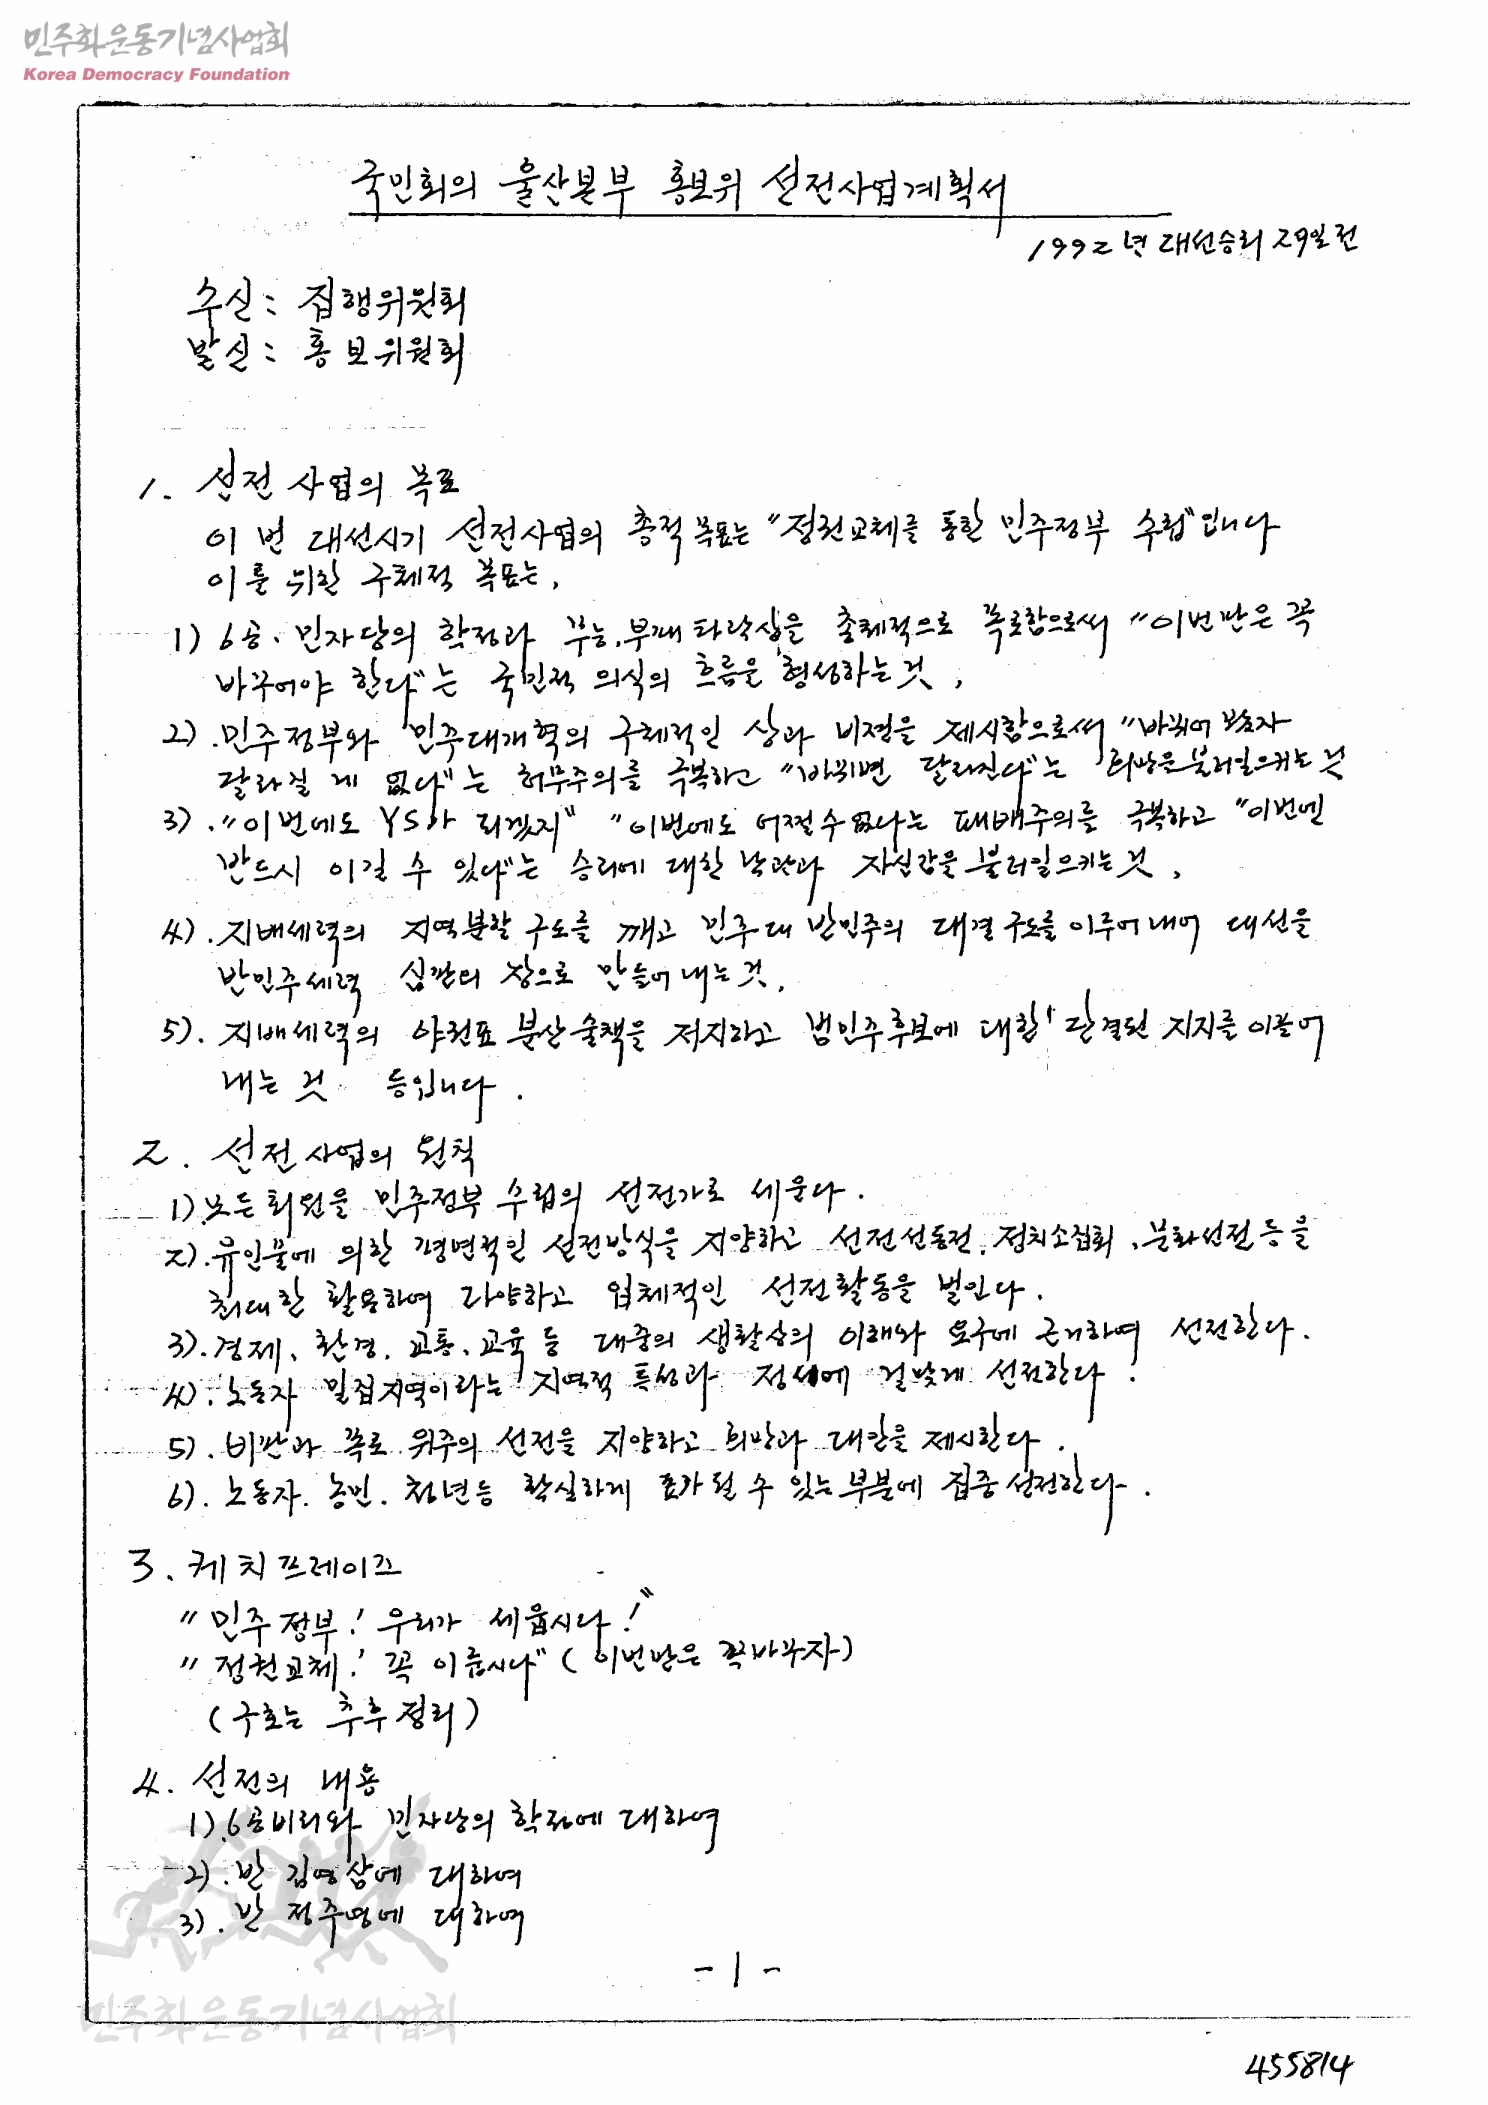 민주화운동기념사업회
Korea Democracy Foundation
국민회의 울산본부 홍보위 선전사업계획서
1992년 대선승리 29일전
수신 : 집행위원회
발신 : 홍보위원회
1. 선전사업의 목표
이번 대선시기 선전사업의 총적 목표는 "정권교체를 통한 민주정부 수립"입니다
이를 위한 구체적 목표는,
1) 6공. 민자당의 학정과 무능, 부패 타락상을 총체적으로 폭로함으로써 "이번만은 꼭
바꾸어야 한다"는 국민적 의식의 흐름을 형성하는 것,
2). 민주정부와 민주대개혁의 구체적인 상과 비젼을 제시함으로써 "바뀌어 보았자
달라질 게 없다"는 허무주의를 극복하고 "바뀌면 달라진다"는 희망을 불러일으키는 것
3). "이번에도 YS가 되겠지" "이번에도 어쩔수 없다는 패배주의를 극복하고 "이번엔
반드시 이길 수 있다"는 승리에 대한 낙관과 자신감을 불러일으키는 것,
4). 지배세력의 지역분할 구도를 깨고 민주 대 반민주의 대결구도를 이루어내어 대선을
반민주세력 심판의 장으로 만들어 내는 것,
5). 지배세력의 야권표 분산술책을 저지하고 범민주후보에 대한 단결된 지지를 이끌어
내는 것 등입니다.
2. 선전사업의 원칙
1) 모든 회원을 민주정부 수립의 선전가로 세운다.
2). 유인물에 의한 평면적인 선전방식을 지양하고 선전선동전, 정치소집회, 문화선전등을
최대한 활용하여 다양하고 입체적인 선전활동을 벌인다.
3). 경제, 환경, 교통, 교육 등 대중의 생활상의 이해와 요구에 근거하여 선전한다.
4). 노동자 밀집지역이라는 지역적 특성과 정세에 걸맞게 선전한다.
5). 비판과 폭로 위주의 선전을 지양하고 희망과 대안을 제시한다.
6). 노동자. 농민. 청년등 확실하게 표가 될 수 있는 부분에 집중 선전한다.
3. 케치프레이즈
"민주정부! 우리가 세웁시다!"
"정권교체! 꼭 이룹시다" (이번만은 꼭바꾸자)
(구호는 추후 정리)
4. 선전의 내용
1). 6공비리와 민자당의 학정에 대하여
2). 반 김영삼에 대하여
3). 반 정주영에 대하여
- 1 -
민주화운동기념사업회
455814